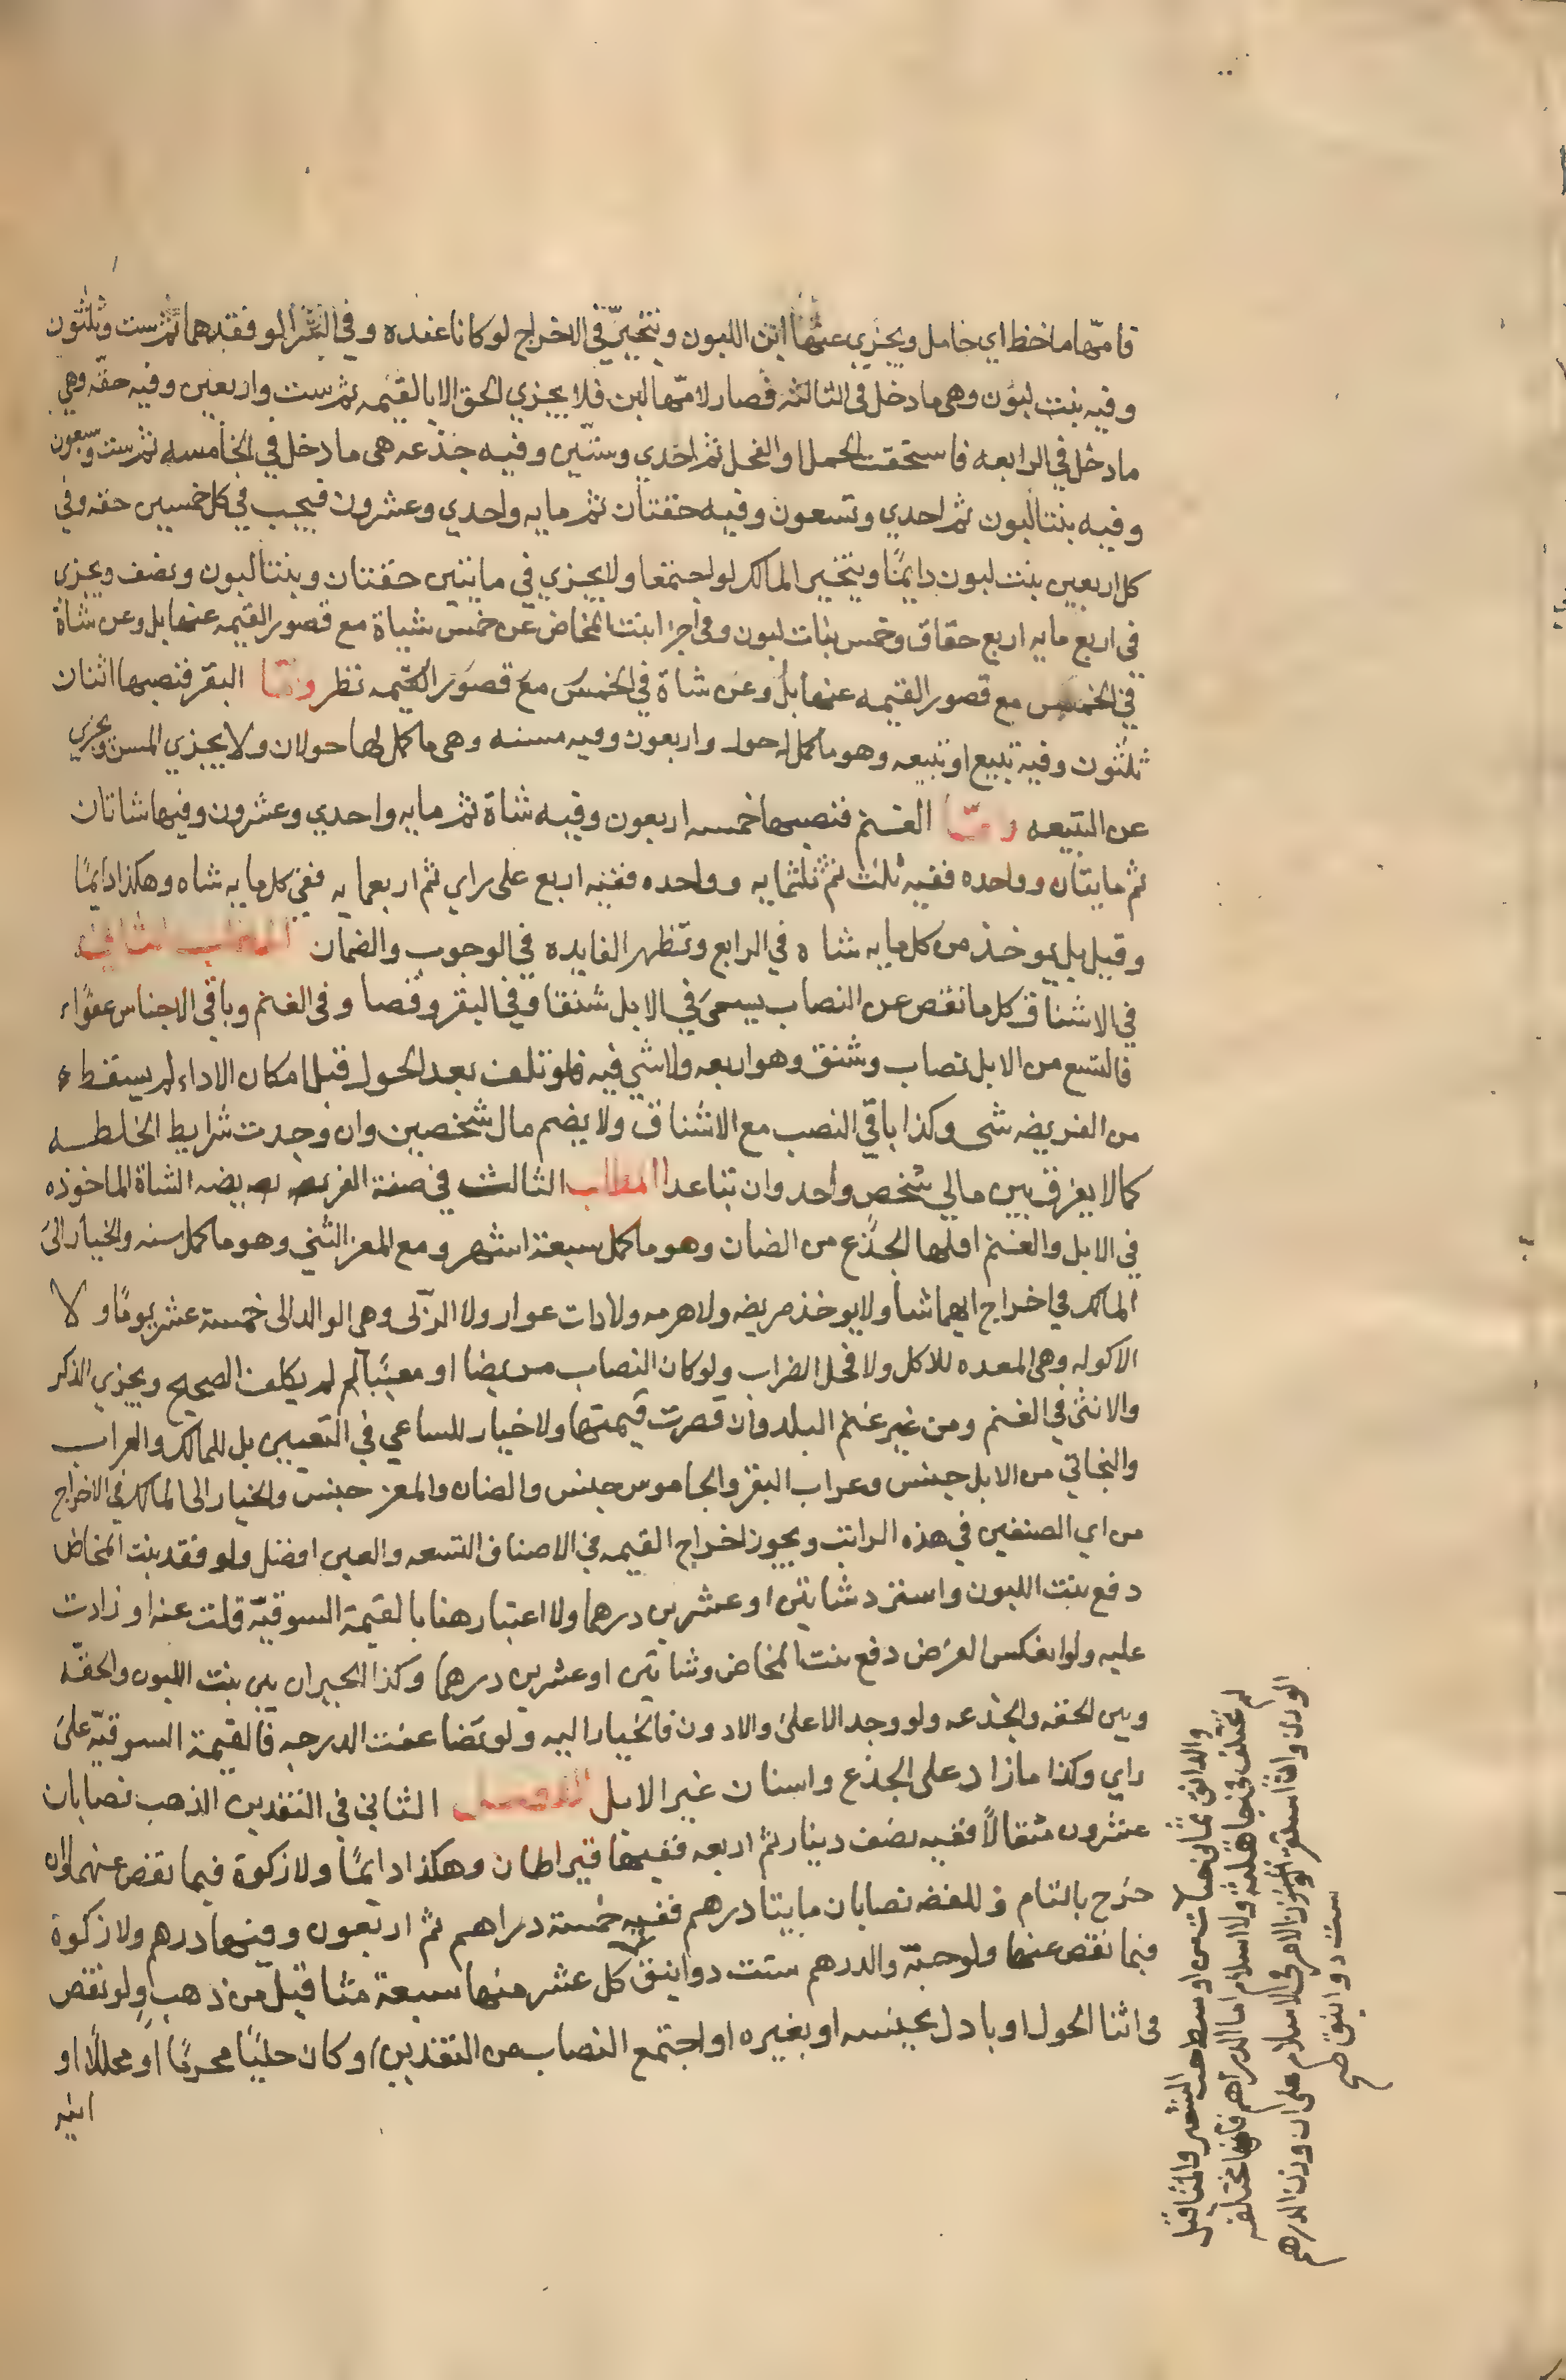 فامّها ماخظ اي حامل ويجزي عنها ابن اللبون ويتخيّر في الاخراج لو كانا عنده وفي الشرا لو فقدهما ثم ست وثلثون
وفيه بنت لبون وهي ما دخل في الثالثه فصار لامّها لبن فلا يجزي الحق الا بالقيمه ثم ست واربعين وفيه حقه وهي
ما دخل في الرابعه فاستحقت الحمل او الفحل ثم احدي وستّين وفيه جذعه هي ما دخل في الخامسه ثم ست وسبعون
وفيه بنتا لبون ثم احدي وتسعون وفيه حقتان ثم مايه واحدي وعشرون فيجب في كل خمسين حقه وفي
كل اربعين بنت لبون دايمًا ويتخير المالك لو اجتمعا ولا يجزي في مايتين حقتان وبنتا لبون ونصف ويجزي
في اربع مايه اربع حقاق وخمس بنات لبون وفي اجزا بنت المخاض عن خمس شياة مع قصور القيمه عنها بل وعن شاة
في الخمس مع قصور القيمه عنها بل وعن شاة في الخمس مع قصور القيمه نظر وامّا البقر فنصبها اثنان
ثلثون وفيه تبيع او تبيعه وهو ما كمل له حول واربعون وفيه مسنه وهي ما كمل لها حولان ولا يجزي المسن ويجزي
عن التبيعه وامّا الغنم فنصبها خمسه اربعون وفيه شاة ثم مايه واحدي وعشرون وفيها شاتان
ثم مايتان وواحده ففيه ثلث ثم ثلثمايه وواحده ففيه اربع على راي ثم اربعمايه ففي كل مايه شاه وهكذا دايمًا
وقيل بل يوخذ من كل مايه شاه في الرابع وتظهر الفايده في الوجوب والضمان المطلب الثاني
في الاشناق كل ما نقص عن النصاب يسمى في الابل شنقا وفي البقر وقصا وفي الغنم وباقي الاجناس عفوًا
فالتسع من الابل نصاب وشنق وهو اربعه ولا شي فيه فلو تلف بعد الحول قبل امكان الاداء لم يسقط
من الفريضه شي وكذا باقي النصب مع الاشناق ولا يضم مال شخصين وان وجدت شرايط الخلطه
كما لا يفرق بين مالي شخص واحد وان تباعدا المطلب الثالث في صفة الفريضه الشاة الماخوذه
في الابل والغنم اقلها الجذع من الضان وهو ما كمل سبعة اشهر ومع المعز الثني وهو ما كمل سنه والخيار الى
المالك في اخراج ايهما شا ولا يوخذ مريضه ولا هرمه ولا ذات عوار ولا الربّى وهي الوالد الى خمسة عشر يومًا ولا
الاكوله وهي المعده للاكل ولا فحل الضراب ولو كان النصاب مريضا او معيبًا لم يكلف الصحيح ويجزي الذكر
والانثى في الغنم ومن غير غنم البلد وان قصرت قيمتها ولا خيار للساعي في التعيين بل للمالك والعراب
والبخاتي من الابل جنس وعراب البقر والجاموس جنس والضان والمعز جنس والخيار الى المالك في الاخراج
من اي الصنفين في هذه المراتب ويجوز اخراج القيمه في الاصناف التسعه والعين افضل ولو فقد بنت المخاض
دفع بنت اللبون واسترد شاتين او عشرين درهما ولا اعتبار هنا بالقيمة السوقيّه قلت عنه او زادت
عليه ولو انعكس الفرض دفع بنت المخاض وشاتين او عشرين درهما وكذا الجبران بين بنت اللبون والحقّه
وبين الحقه والجذعه ولو وجد الاعلى والادون فالخيار اليه ولو تضاعفت الدرجه فالقيمة السوقيّه على
راي وكذا ما زاد على الجذع واسنان غير الابل الفصل الثاني في النقدين الذهب نصابان
عشرون مثقالاً ففيه نصف دينار ثم اربعه ففيها قيراطان وهكذا دايمًا ولا زكوة فيما نقص عنهما وان
خرج بالتام وللفضه نصابان مايتا درهم ففيه خمسة دراهم ثم اربعون وفيها درهم ولا زكوة
فيما نقص عنها ولو حبّه والدرهم ستت دوانيق كل عشر منها سبعة مثاقيل من ذهب ولو نقص
في اثنا الحول او بادل بجنسه او بغيره او اجتمع النصاب من النقدين او كان حليًا محرمًا او محللًا او
والدانق ثماني حبات من اوسط حب الشعير والمثاقيل
لم تختلف في جاهلية ولا اسلام اما الدراهم فانها مختلفه
الوزن وانما استقر الوزن الامر في الاسلام على ان وزن الدرهم
ست دوانيق